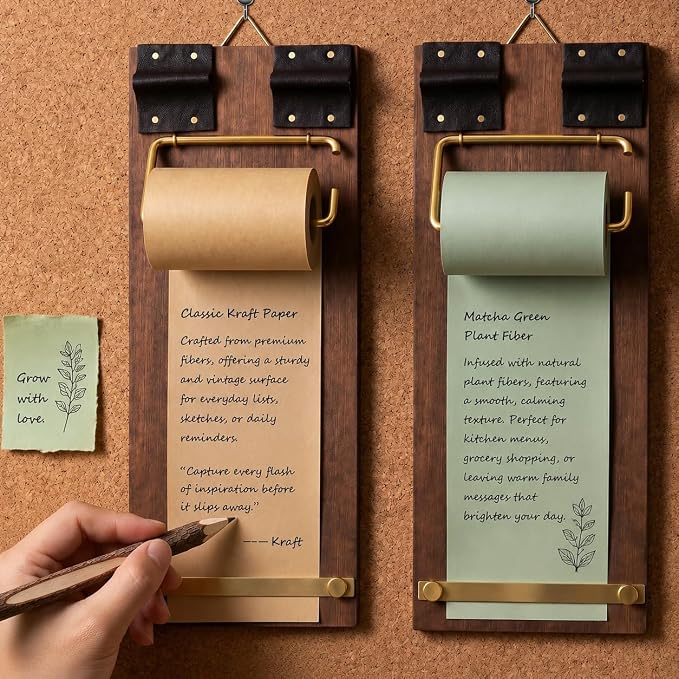 Grow
with
love.
Classic Kraft Paper
Crafted from premium
fibers, offering a sturdy
and vintage surface
for everyday lists,
sketches, or daily
reminders.
“Capture every flash
of inspiration before
it slips away.”
--- Kraft
Matcha Green
Plant Fiber
Infused with natural
plant fibers, featuring
a smooth, calming
texture. Perfect for
kitchen menus,
grocery shopping, or
leaving warm family
messages that
brighten your day.